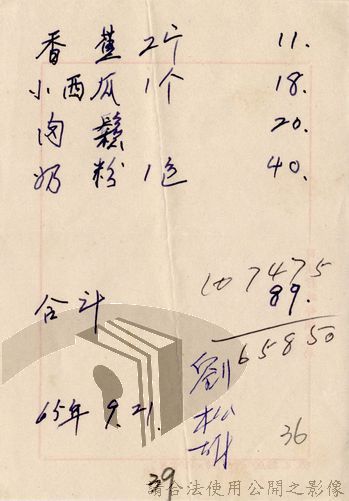 香蕉 2个 11.
小西瓜 1个 18.
肉鬆 20.
奶粉 1包 40.
107475
合计 89.
65850
65年 9.21.
劉松
36
39
請合法使用公開之影像